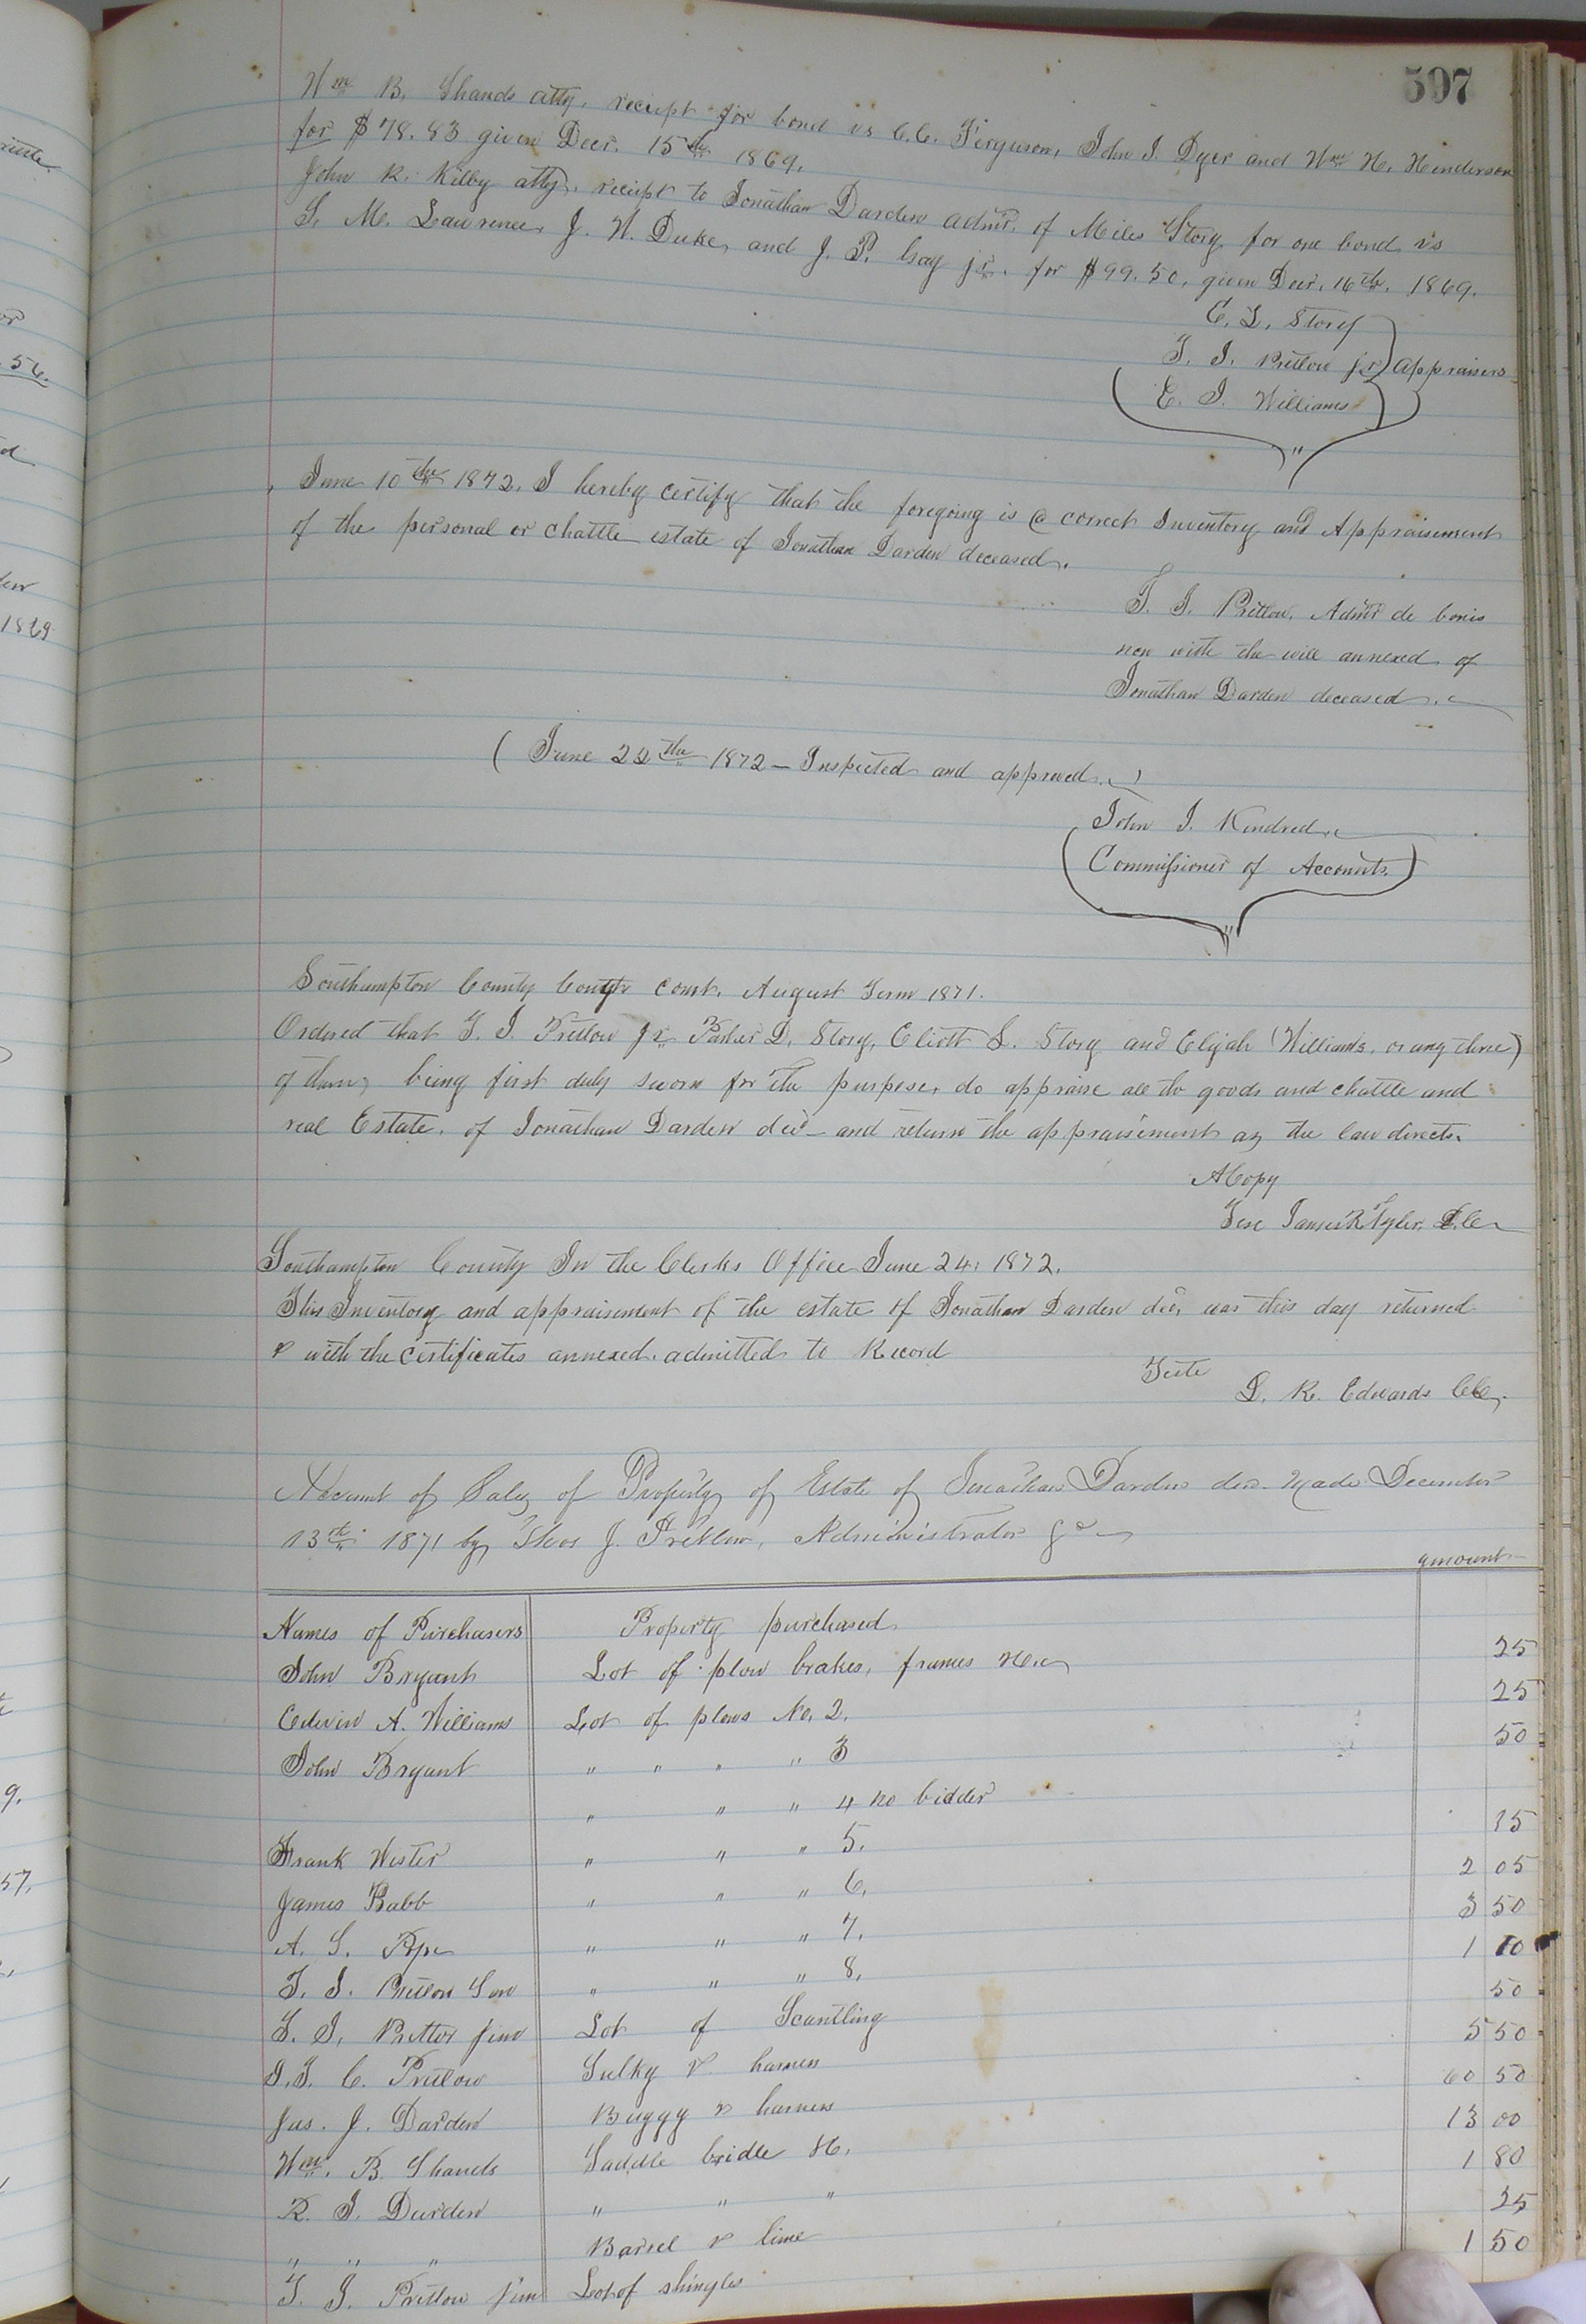 597
Wm B. Shands atty. reciept for bond vs C.C. Ferguson, John J. Dyer and Wm H. Henderson
for $78.83 given Decr. 15th 1869.
John R. Kilby atty. reciept to Jonathan Darden admr. of Miles Story for one bond vs
S. M. Lawrence, J. W. Duke, and J. P. Gay jr. for $99.50, given Decr. 16th. 1869.
E. L. Story
T. J. Pretlow jr appraisers
E. J. Williams
June 10th 1872. I hereby certify that the foregoing is a correct Inventory and Appraisement
of the personal or chattle estate of Jonathan Darden deceased.
T. J. Pretlow, Admr de bonis
non with the will annexed of
Jonathan Darden deceased.
(June 22th 1872 — Inspected and approved.)
John J. Kindred
Commissioner of Accounts.
Southampton County court. August Term 1871.
Ordered that T. J. Pretlow jr Parker D. Story, Eliott L. Story and Elijah Williams, or any three
of them, being first duly sworn for the purpose, do appraise all the goods and chattle and
real Estate. of Jonathan Darden decd — and return the appraisement as the law directs.
A Copy
Teste James R Tyler, D.C.
Southampton County In the Clerks Office June 24, 1872.
This Inventory and appraisement of the estate of Jonathan Darden decd, was this day returned
& with the certificates annexed. admitted to Record
Teste
L. R. Edwards CC,
Account of Sales of Property of Estate of Jonathan Darden decd. Made December
13th 1871 by Thos J. Pretlow, Administrator &c
amount
Names of Purchasers Property purchased
John Bryant Lot of plow brakes, frames &c. 25
Edwin A. Williams Lot of plows No. 2. 25
John Bryant " " " " 3 50
" " " 4 no bidder
Frank Wester " " " 5. 15
James Babb " " " 6. 2 05
A. S. Pope " " " 7. 3 50
T. J. Pretlow Sen " " " 8. 1 10
T. J. Pretlow jun Lot of Scantling 50
J. T. C. Pretlow Sulky & harness 5 50
Jas. J. Darden Buggy & harness 60 50
Wm. B. Shands Saddle bridle &c. 13 00
R. J. Darden " " " 1 80
" " " Barrel & lime 25
T. J. Pretlow jun Lot of shingles 1 50